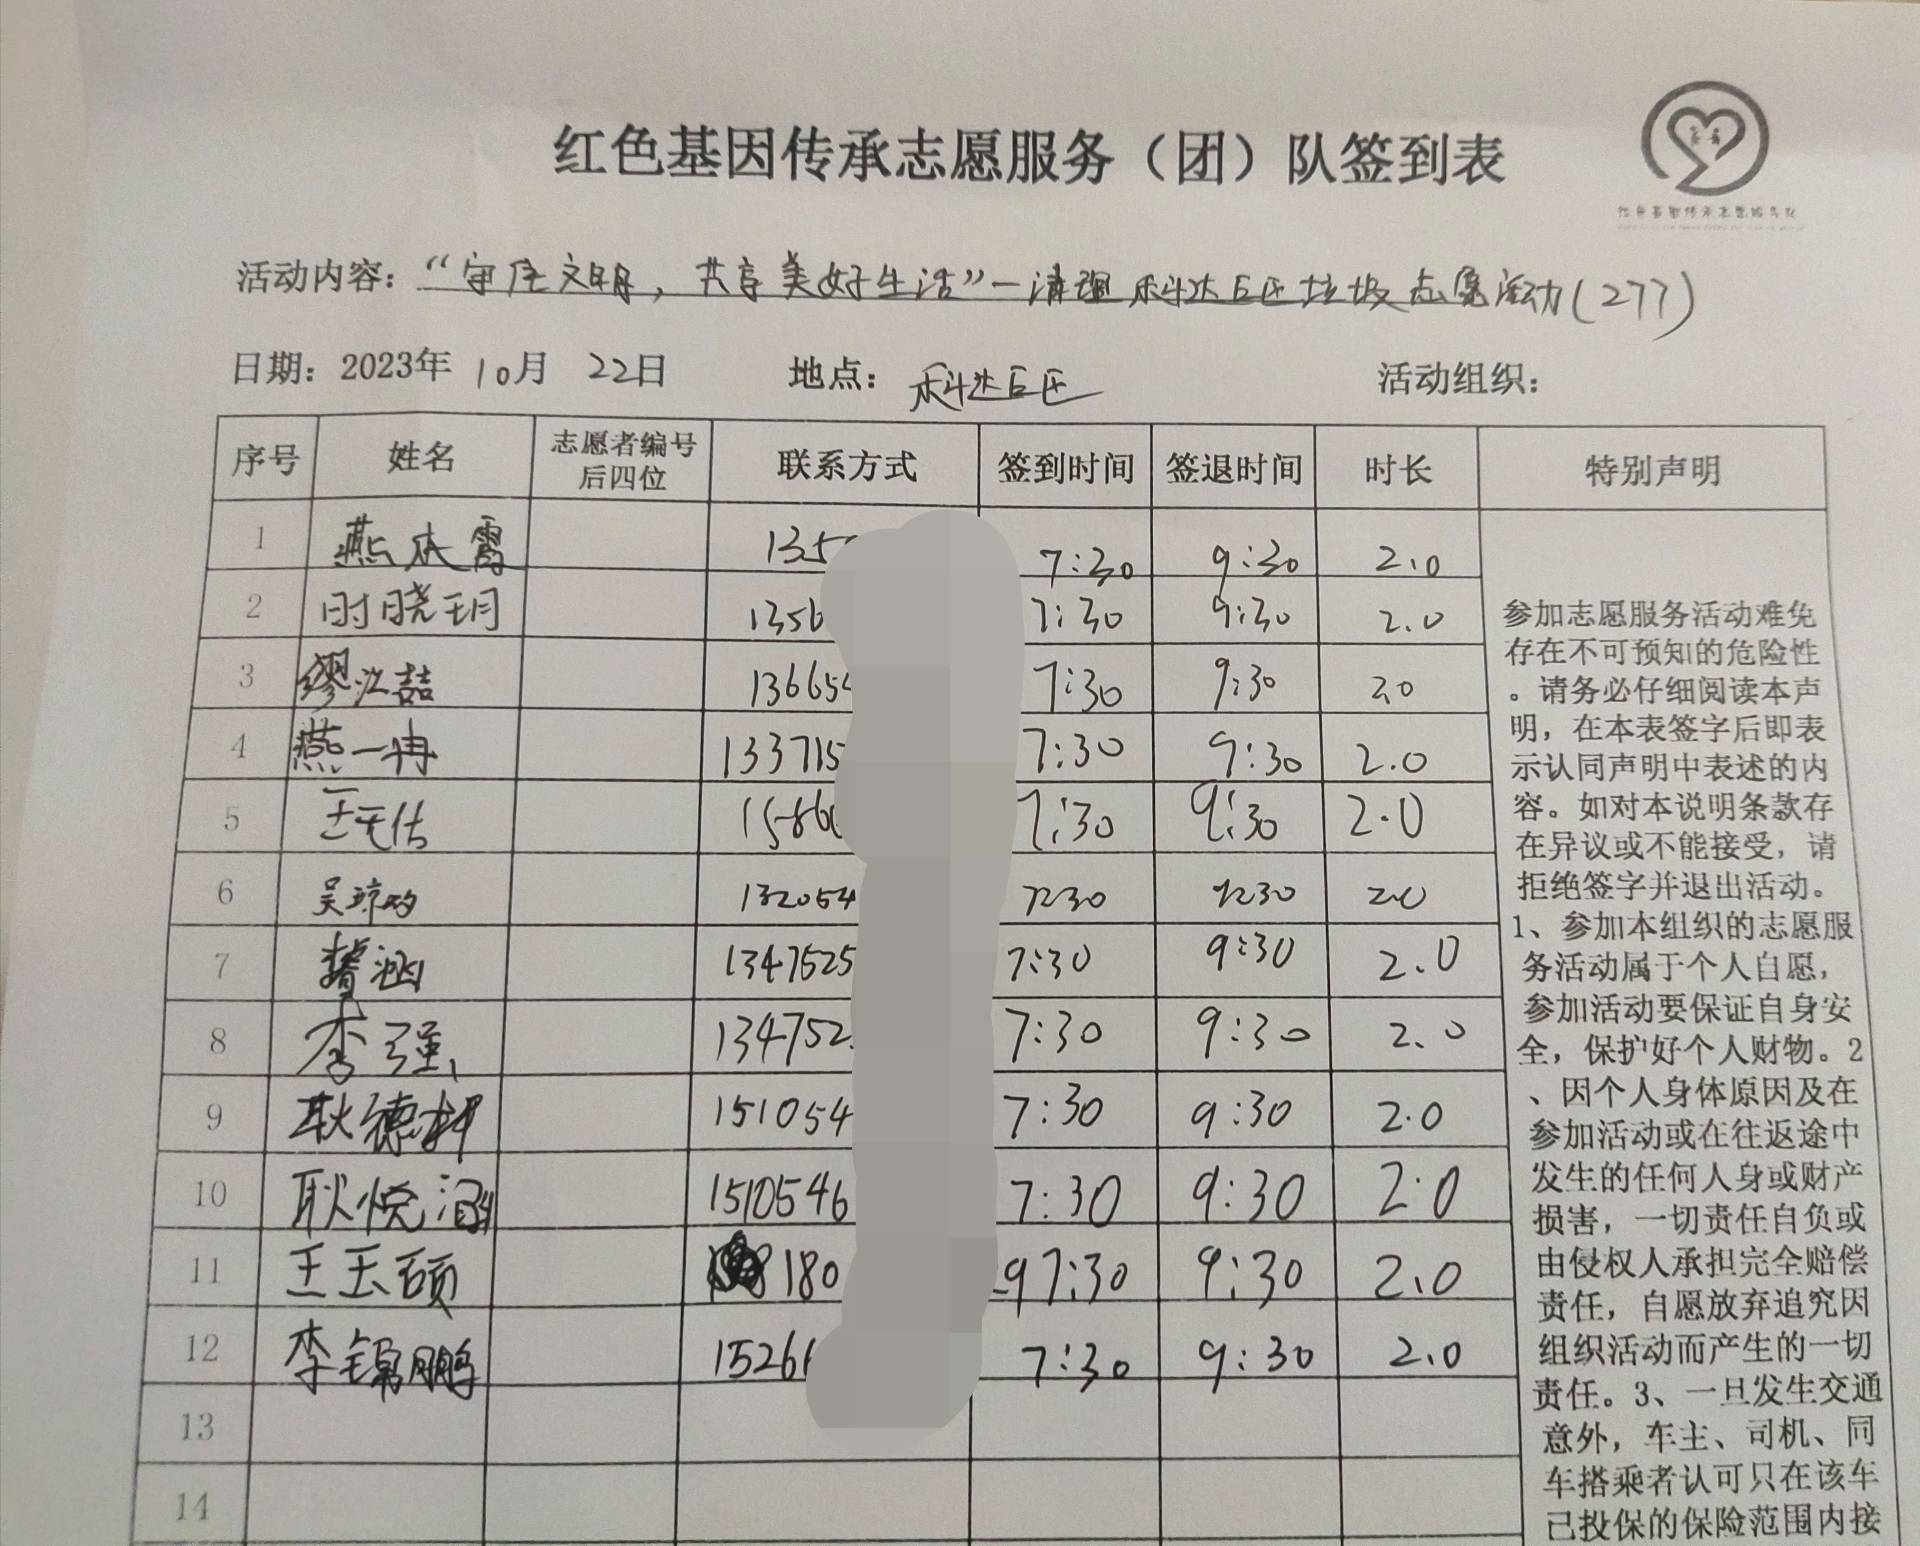 红色基因传承志愿服务（团）队签到表
红色基因传承志愿服务队
活动内容：“守住文明，共享美好生活”—清理科达巨区垃圾志愿活动(277)
日期：2023年 10月 22日 地点：科达巨区 活动组织：
序号 姓名 志愿者编号后四位 联系方式 签到时间 签退时间 时长 特别声明
1 燕本霞 135 7:30 9:30 2.0
2 时晓玥 1356 7:30 9:30 2.0
3 缪泓喆 136654 7:30 9:30 2.0
4 燕一冉 133715 7:30 9:30 2.0
5 王天佑 15866 7:30 9:30 2.0
6 吴琼 132054 7:30 9:30 2.0
7 涵 1347525 7:30 9:30 2.0
8 李强 134752 7:30 9:30 2.0
9 耿德 151054 7:30 9:30 2.0
10 耿悦涵 1510546 7:30 9:30 2.0
11 王玉硕 180 9 7:30 9:30 2.0
12 李锦鹏 15266 7:30 9:30 2.0
13
14
参加志愿服务活动难免
存在不可预知的危险性
。请务必仔细阅读本声
明，在本表签字后即表
示认同声明中表述的内
容。如对本说明条款存
在异议或不能接受，请
拒绝签字并退出活动。
1、参加本组织的志愿服
务活动属于个人自愿，
参加活动要保证自身安
全，保护好个人财物。2
、因个人身体原因及在
参加活动或在往返途中
发生的任何人身或财产
损害，一切责任自负或
由侵权人承担完全赔偿
责任，自愿放弃追究因
组织活动而产生的一切
责任。3、一旦发生交通
意外，车主、司机、同
车搭乘者认可只在该车
已投保的保险范围内接